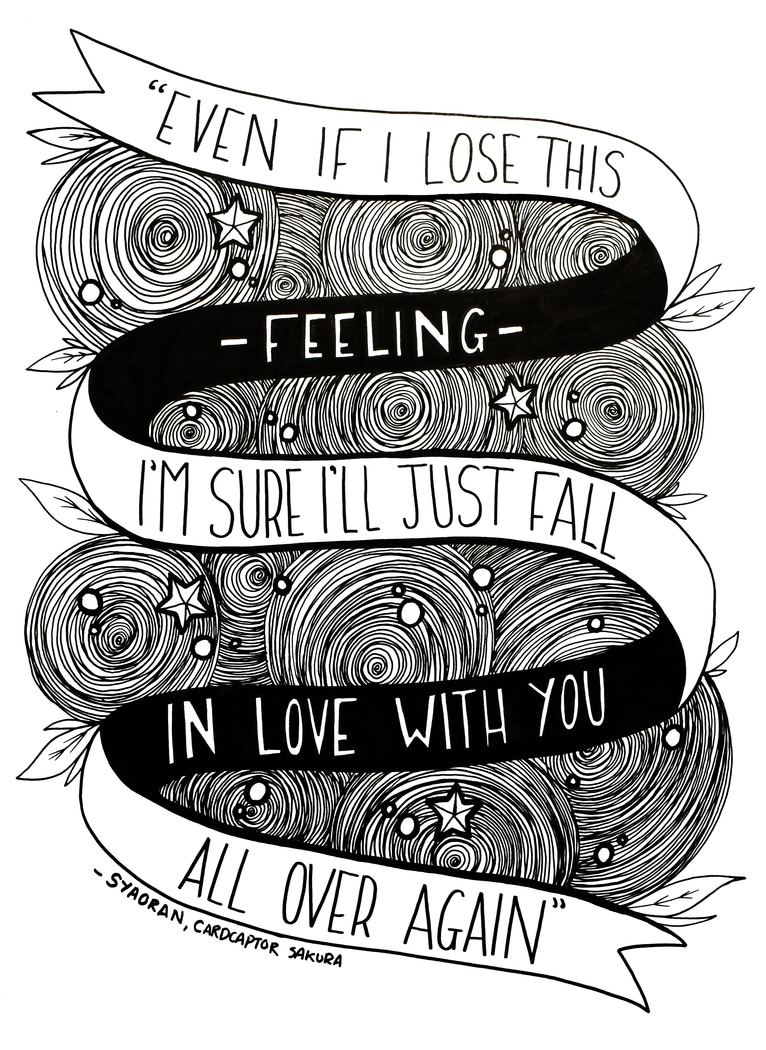 “EVEN IF I LOSE THIS
-FEELING-
I'M SURE I'LL JUST FALL
IN LOVE WITH YOU
ALL OVER AGAIN”
- SYAORAN, CARDCAPTOR SAKURA